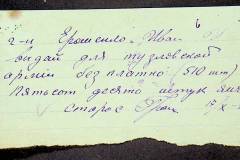 6
г-н Ерошенко Иван
выдай для тузловской
армии безплатно (510 шт)
Пятьсот десять штук яиц
старос